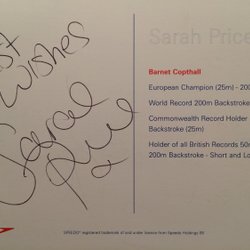 Sarah Price
Best
Wishes
Sarah
Price
Barnet Copthall
European Champion (25m) - 200
World Record 200m Backstroke
Commonwealth Record Holder
Backstroke (25m)
Holder of all British Records 50m
200m Backstroke - Short and Lo
SPEEDO® registered trademark of and used under licence from Speedo Holdings BV